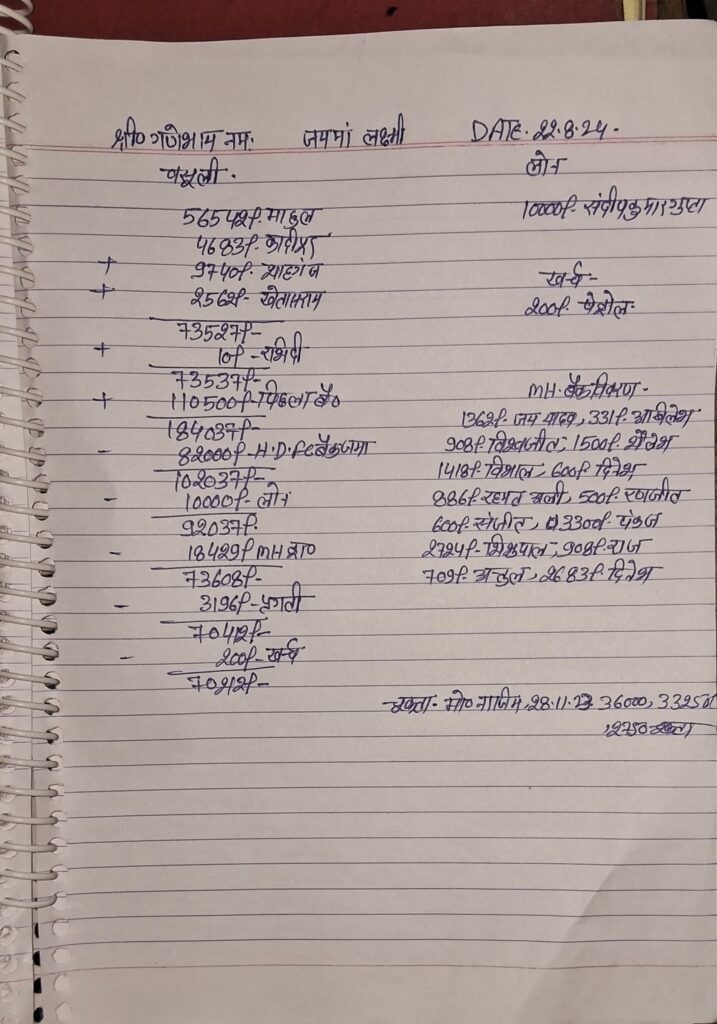 श्री० गणेशाय नमः जय मां लक्ष्मी DATE. 22.8.24.
वसूली.
56542/. माहुल
4683/.
+ 9740/. शाहगंज
+ 2562/- खेतासराय
73527/-
+ 10/-
73537/-
+ 110500/- पिछला बै०
184037/-
- 82000/- H.D.FC बैंक जमा
102037/-
- 10000/- लोन
92037/.
- 18429/ MH
73608/-
- 3196/- प्रगती
70412/-
- 200/- खर्च
70212/-
लोन
10000/. संदीप कुमार गुप्ता
खर्च-
200/. पेट्रोल.
MH. बैंक विवरण.
1362/. जय यादव, 331/. अखिलेश
908/. विश्वजीत, 1500/. शैलेश
1418/. विशाल, 600/. दिनेश
886/. रहमत अली, 500/. रणजीत
600/. संजीत, 3300/. पंकज
2724/. शिवपाल, 908/. राज
709/. अतुल, 2683/. दिनेश
मो० नाजिम, 28.11.23 36000, 33250/
,2750